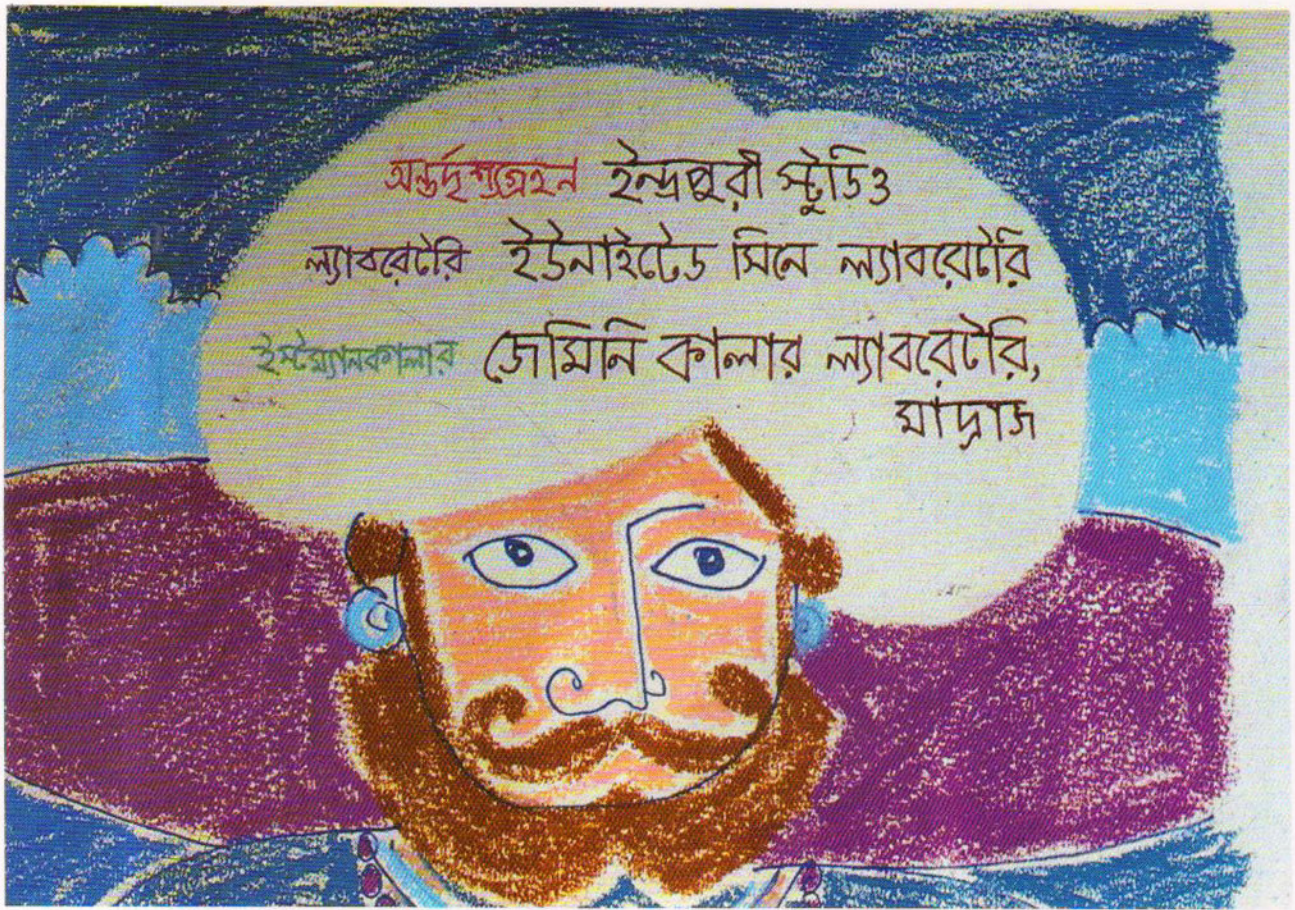 অন্তর্দৃশ্যগ্রহন ইন্দ্রপুরী স্টুডিও
ল্যাবরেটরি ইউনাইটেড সিনে ল্যাবরেটরি
ইস্টম্যানকালার জেমিনি কালার ল্যাবরেটরি,
মাদ্রাজ